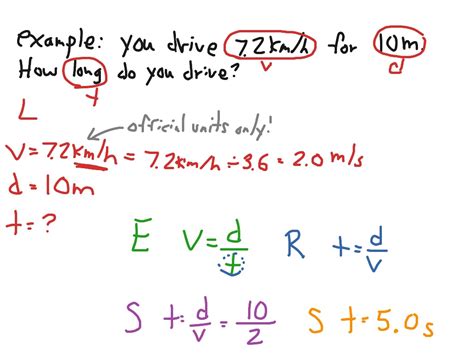 example: you drive 7.2km/h for 10m.
v d
How long do you drive?
t
L
official units only!
v = 7.2km/h = 7.2km/h ÷ 3.6 = 2.0 m/s
d = 10m
t = ?
E v = d/t R t = d/v
S t = d/v = 10/2 S t = 5.0s